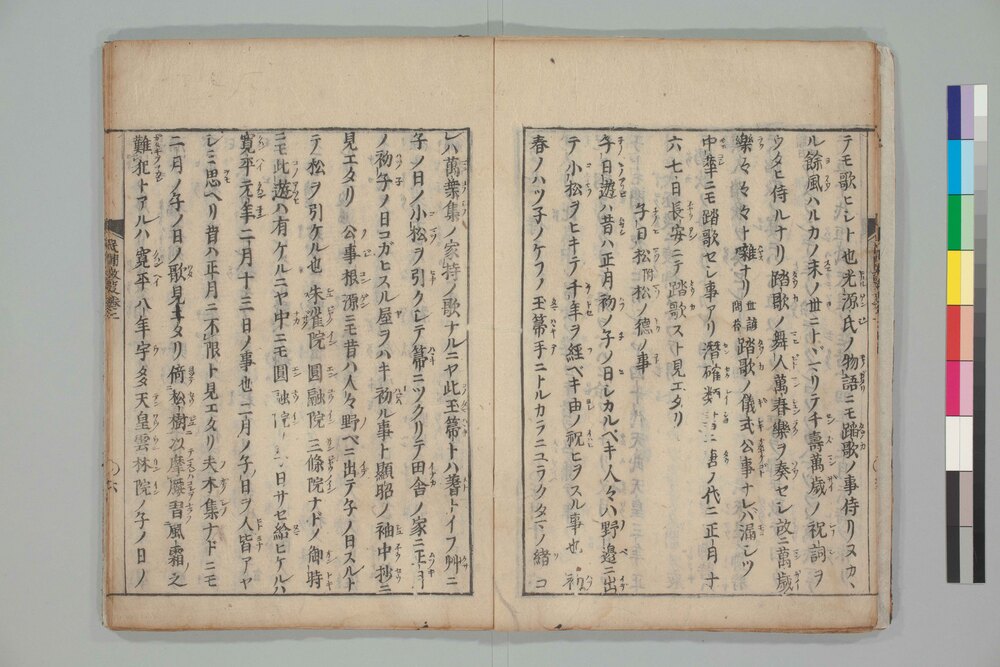 テモ歌ヒシト也光源氏ノ物語ニモ踏歌ノ事侍リヌカヽ
ル餘風ハルカノ末ノ世ニトヾマリテ千壽萬歳ノ祝詞ヲ
ウタヒ侍ルナリ踏歌ノ舞人萬春樂ヲ奏セシ故ニ萬歳
樂々々々ト囃ナリ世諺問答踏歌ノ儀式公事ナレバ漏シツ
中華ニモ踏歌セシ事アリ潜確類ニ唐ノ代ニ正月十
六七日長安ニテ踏歌スト見エタリ
子日松附松ノ德ノ事
子日遊ハ昔ハ正月初ノ子ノ日シカルベキ人々ハ野邉ニ出
テ小松ヲヒキテ千年ヲ經ベキ由ノ祝ヒヲスル事也初
春ノハツ子ノケフノ玉箒手ニトルカラニユラクタマノ緒コ
レハ萬葉集ノ家持ノ歌ナルニヤ此玉箒トハ蓍トイフ艸ニ
子ノ日ノ小松ヲ引クシテ箒ニツクリテ田舎ノ家ニ正月
ノ初子ノ日コガヒスル屋ヲハキ初ル事ト顯昭ノ袖中抄ニ
見エタリ公事根源ニモ昔ハ人々野ベニ出テ子ノ日スルト
テ松ヲ引ケル也朱雀院圓融院三條院ナドノ御時
ニモ此遊ハ有ケルニヤ中ニモ圓融院ノ子ノ日サセ給ヒケルハ
寛平元年二月十三日ノ事也二月ノ子ノ日ヲ人皆アヤ
シミ思ヘリ昔ハ正月ニ不限ト見エタリ夫木集ナドニモ
二月ノ子ノ日ノ歌見エタリ倚松樹以摩腰習風霜之
難犯トアルハ寛平八年宇多天皇雲林院ノ子ノ日ノ